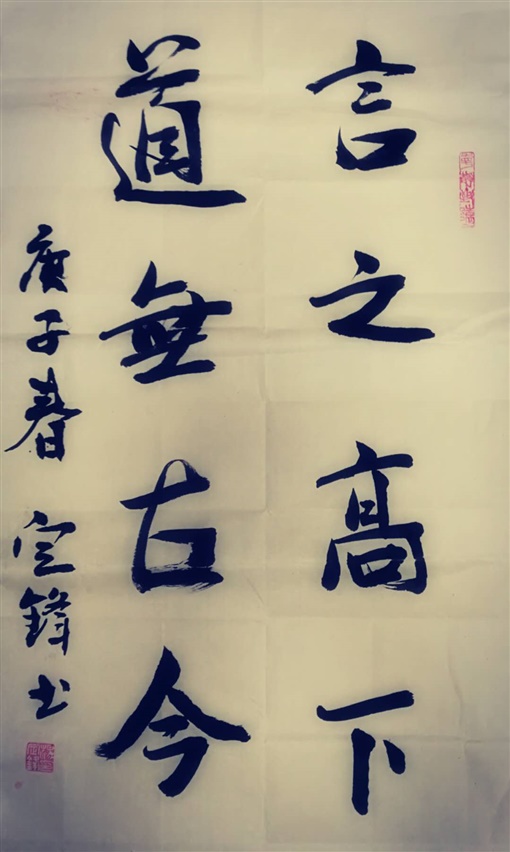 言之高下
道無古今
庚子春 定鋒书